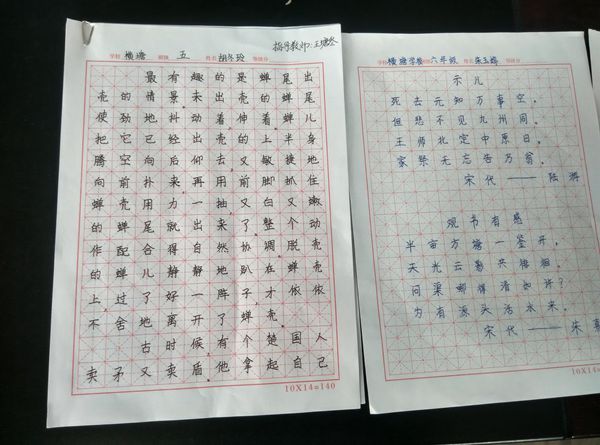 指导教师:王塘冬
学校 横塘 班级 五 姓名 胡冬玲 等级分
最有趣的是蝉尾出
壳的情景未出壳的蝉尾
使劲地抖动着伸着蝉儿
把它已经出壳的上半身
腾空向后仰去又敏捷地
向前扑来再用前脚抓住
蝉壳用力一抽又白又嫩
的蝉尾就出来了.整个动
作配合得自然协调.脱壳
的蝉儿静静地趴在蝉壳
上,过了好一阵子,才依依
不舍地离开了蝉壳.
古时候有个楚国人
卖矛又卖盾.他拿起自己
10X14=140
学校 横塘学校 班级 六年级 姓名 朱玉婷 等级分
示儿
死去元知万事空,
但悲不见九州同.
王师北定中原日,
家祭无忘告乃翁.
宋代——陆游
观书有感
半亩方塘一鉴开,
天光云影共徘徊.
问渠哪得清如许?
为有源头活水来.
宋代——朱熹
10X14=